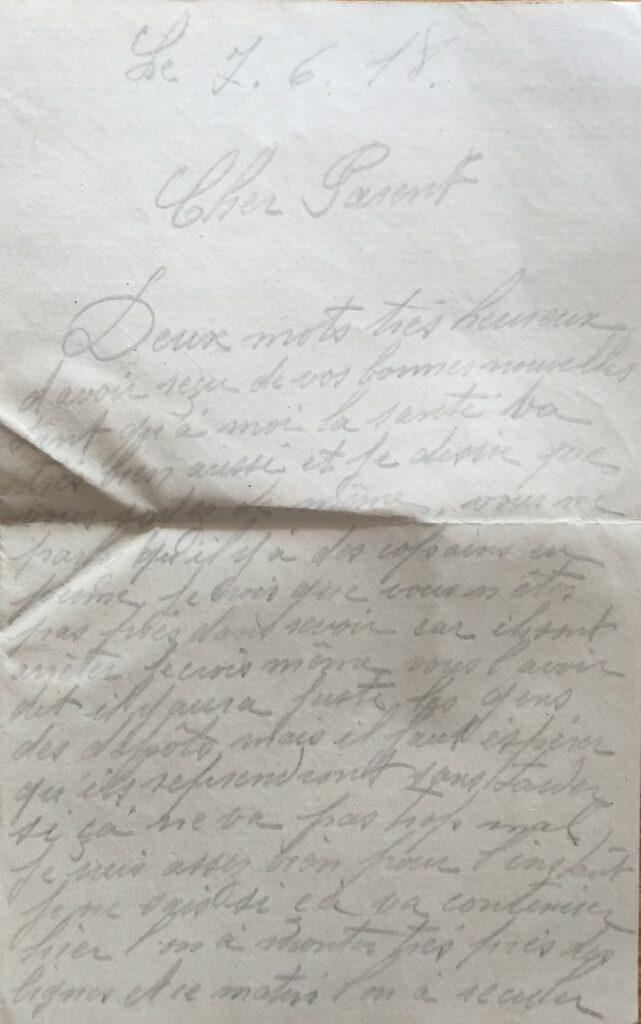 Le 7. 6. 18.
Cher Parent
Deux mots très heureux
d'avoir reçu de vos bonnes nouvelles
tant qu'à moi la santé va
très bien aussi et je desire que
vous de même, vous me
qu'il y à des copains en
perme, je crois que vous n êtes
pas près d'en revoir car ils sont
arrêter je crois même vous l'avoir
dit il y aura juste les gens
des dépôts, mais il faut espérer
qu'ils reprendront sans tarder
si çà ne va pas trop mal,
je suis assez bien pour l'instant
je ne sais si ca va continuer
hier l'on à monter très près des
lignes et ce matin l'on à reculer